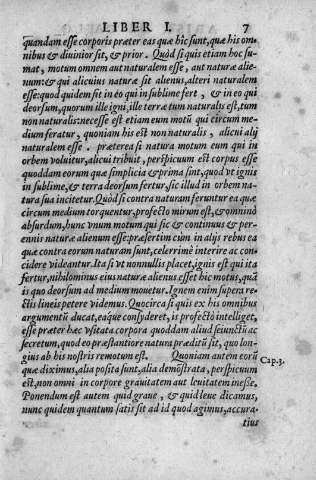 LIBER I. 7
quandam esse corporis præter eas quæ hic sunt, quæ his om
nibus & diuinior sit, & prior. Quòd si quis etiam hoc su-
mat, motum omnem aut naturalem esse, aut naturæ alie-
num: & qui alicuius naturæ sit alienus, alteri naturalem
esse: quod quidem sit in eo qui in sublime fert, & in eo qui
deorsum, quorum ille igni, ille terræ tum naturalis est, tum
non naturalis: necesse est etiam eum motũ qui circum me-
dium feratur, quoniam his est non naturalis, alicui alij
naturalem esse. præterea si natura motum eum qui in
orbem voluitur, alicui tribuit, perspicuum est corpus esse
quoddam eorum quæ simplicia & prima sunt, quod vt ignis
in sublime, & terra deorsum fertur, sic illud in orbem na-
tura sua incitetur. Quòd si contra naturam feruntur ea quæ
circum medium torquentur, profecto mirum est, & omninò
absurdum, hunc vnum motum qui sic & continuus & per-
ennis naturæ alienum esse: præsertim cùm in alijs rebus ea
quæ contra eorum naturam sunt, celerrimè interire ac con
cidere videantur. Ita si vt nonnullis placet, ignis est qui ita
fertur, nihilominus eius naturæ alienus esset hic motus, quã
is quo deorsum ad medium mouetur. Ignem enim supera re-
ctis lineis petere videmus. Quocirca si quis ex his omnibus
argumentũ ducat, eaque consyderet, is profectò intelliget,
esse præter hæc vsitata corpora quoddam aliud seiunctũ ac
secretum, quod eo præstantiore natura præditũ sit, quo lon-
gius ab his nostris remotum est. Quoniam autem eorũ
quæ diximus, alia posita sunt, alia demõstrata, perspicuum
est, non omni in corpore grauitatem aut leuitatem inesse.
Ponendum est autem quid graue, & quid leue dicamus,
nunc quidem quantum satis sit ad id quod agimus, accura-
tius
Cap. 3.